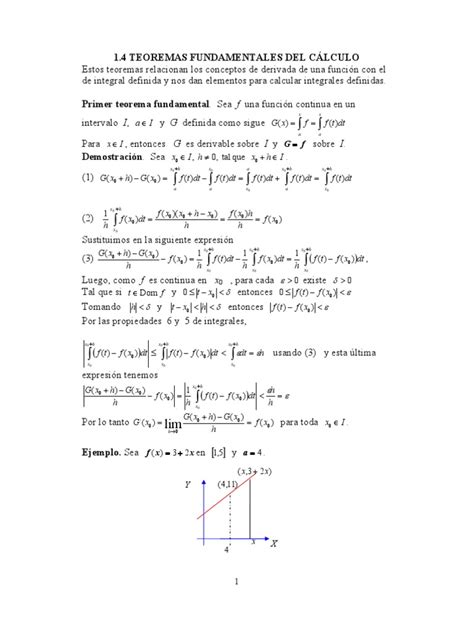 1.4 TEOREMAS FUNDAMENTALES DEL CÁLCULO
Estos teoremas relacionan los conceptos de derivada de una función con el
de integral definida y nos dan elementos para calcular integrales definidas.
Primer teorema fundamental. Sea f una función continua en un
intervalo I, a ∈ I y G definida como sigue G(x) = ∫ₐˣ f = ∫ₐˣ f(t)dt
Para x ∈ I, entonces G es derivable sobre I y G = f sobre I.
Demostración. Sea x₀ ∈ I, h ≠ 0, tal que x₀ + h ∈ I.
(1) G(x₀ + h) − G(x₀) = ∫ₐ^(x₀+h) f(t)dt − ∫ₐ^(x₀) f(t)dt = ∫ f(t)dt + ∫ f(t)dt = ∫ f(t)dt
(2) 1/h ∫_(x₀)^(x₀+h) f(x₀)dt = f(x₀)(x₀ + h − x₀)/h = f(x₀)h/h = f(x₀)
Sustituimos en la siguiente expresión
(3) (G(x₀ + h) − G(x₀))/h − f(x₀) = 1/h ∫_(x₀)^(x₀+h) f(t)dt − 1/h ∫_(x₀)^(x₀+h) f(x₀)dt = 1/h ∫_(x₀)^(x₀+h) (f(t) − f(x₀))dt,
Luego, como f es continua en x₀, para cada ε > 0 existe δ > 0
Tal que si t ∈ Dom f y 0 ≤ |t − x₀| < δ entonces 0 ≤ |f(t) − f(x₀)| < ε
Tomando |h| < δ y |t − x₀| < h entonces |f(t) − f(x₀)| < ε
Por las propiedades 6 y 5 de integrales,
|∫_(x₀)^(x₀+h) (f(t) − f(x₀))dt| ≤ ∫_(x₀)^(x₀+h) |f(t) − f(x₀)|dt < ∫_(x₀)^(x₀+h) εdt = εh usando (3) y esta última
expresión tenemos
|(G(x₀ + h) − G(x₀))/h − f(x₀)| = |1/h ∫_(x₀)^(x₀+h) (f(t) − f(x₀))dt| < εh/h = ε
Por lo tanto G'(x₀) = lim_(h→0) (G(x₀ + h) − G(x₀))/h = f(x₀) para toda x₀ ∈ I.
Ejemplo. Sea f(x) = 3 + 2x en [1,5] y a = 4.
(x,3+ 2x)
Y (4,11)
4 x X
1